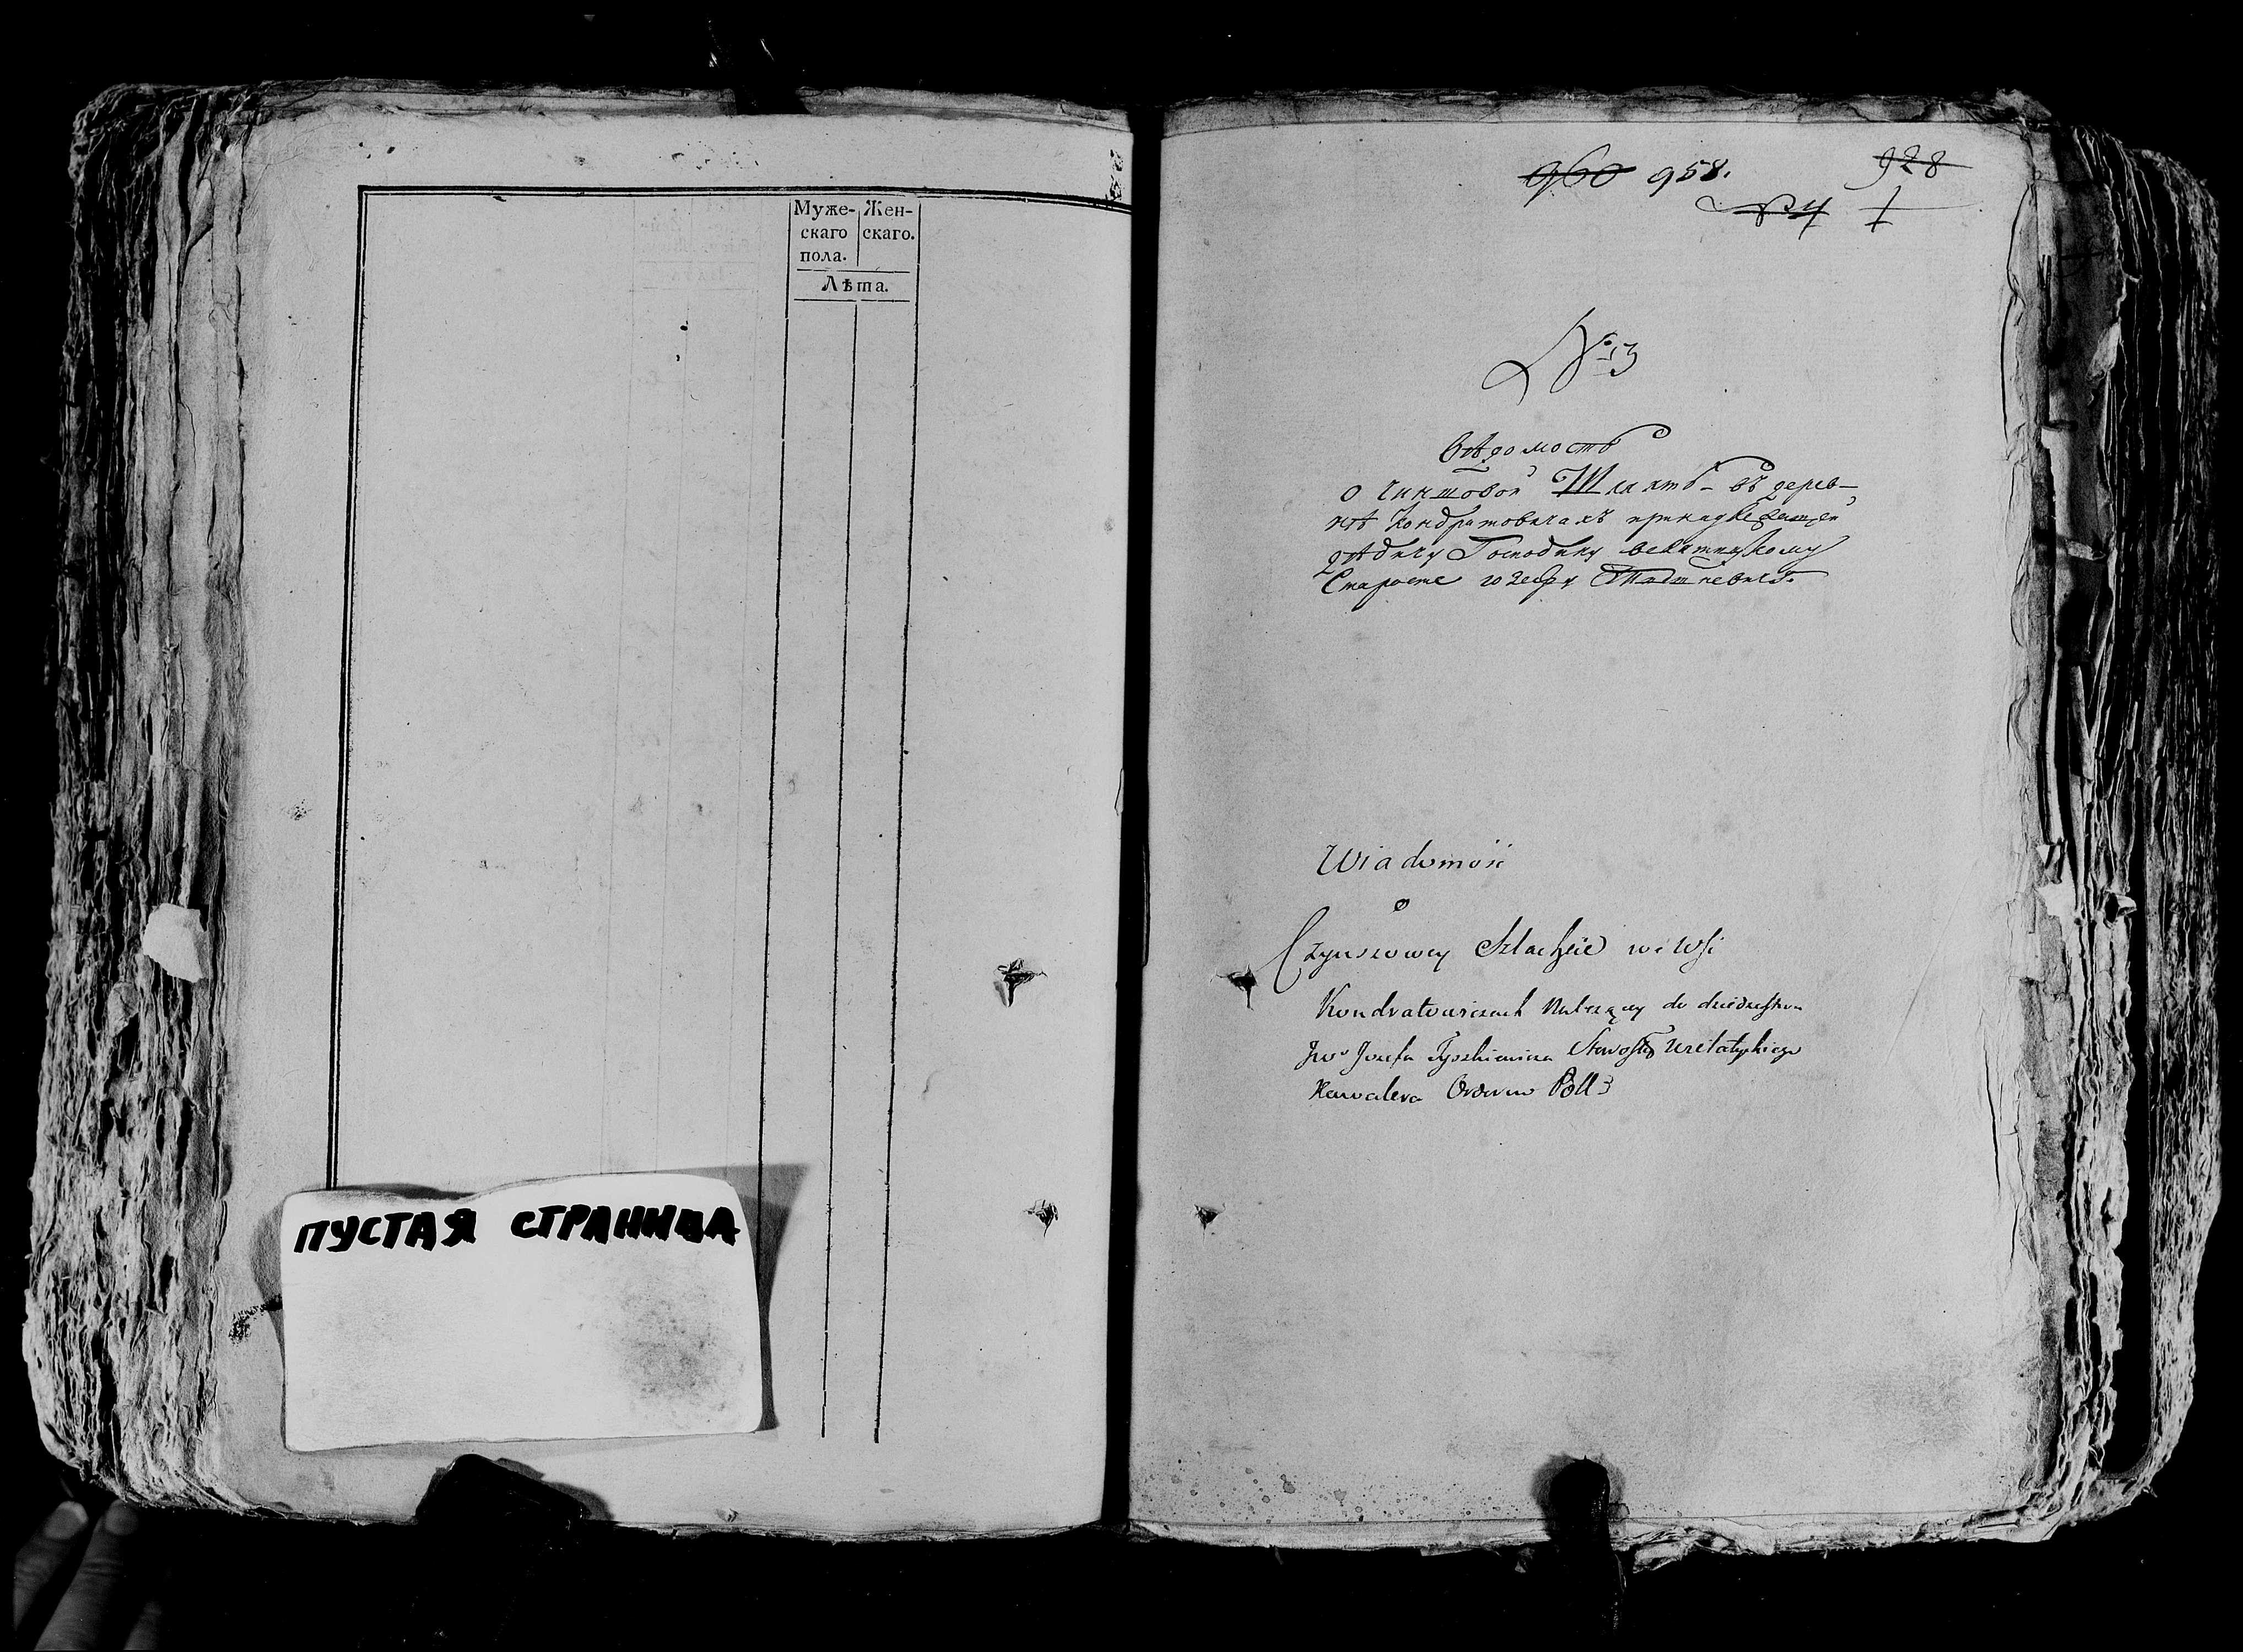 Муже- Жен-
скаго скаго.
пола.
Лѣта.
ПУСТАЯ СТРАНИЦА
960 958. 928
№ 4 1
№ 13
Вѣдомость
о Чиншовой Шляхтѣ въ дерев-
нѣ Кондратовичахъ принадлежащей
дѣдичу Господину велатицкому
Старосте юзефу Тишкевичу.
Wiadomość
o
Czynszowey Szlachcie we Wsi
Kondratowiczach Należącey do dziedzictwa
JWo Jozefa Tyszkiewicza Starosty Wielatyckiego
Kawalera Orderow Poll